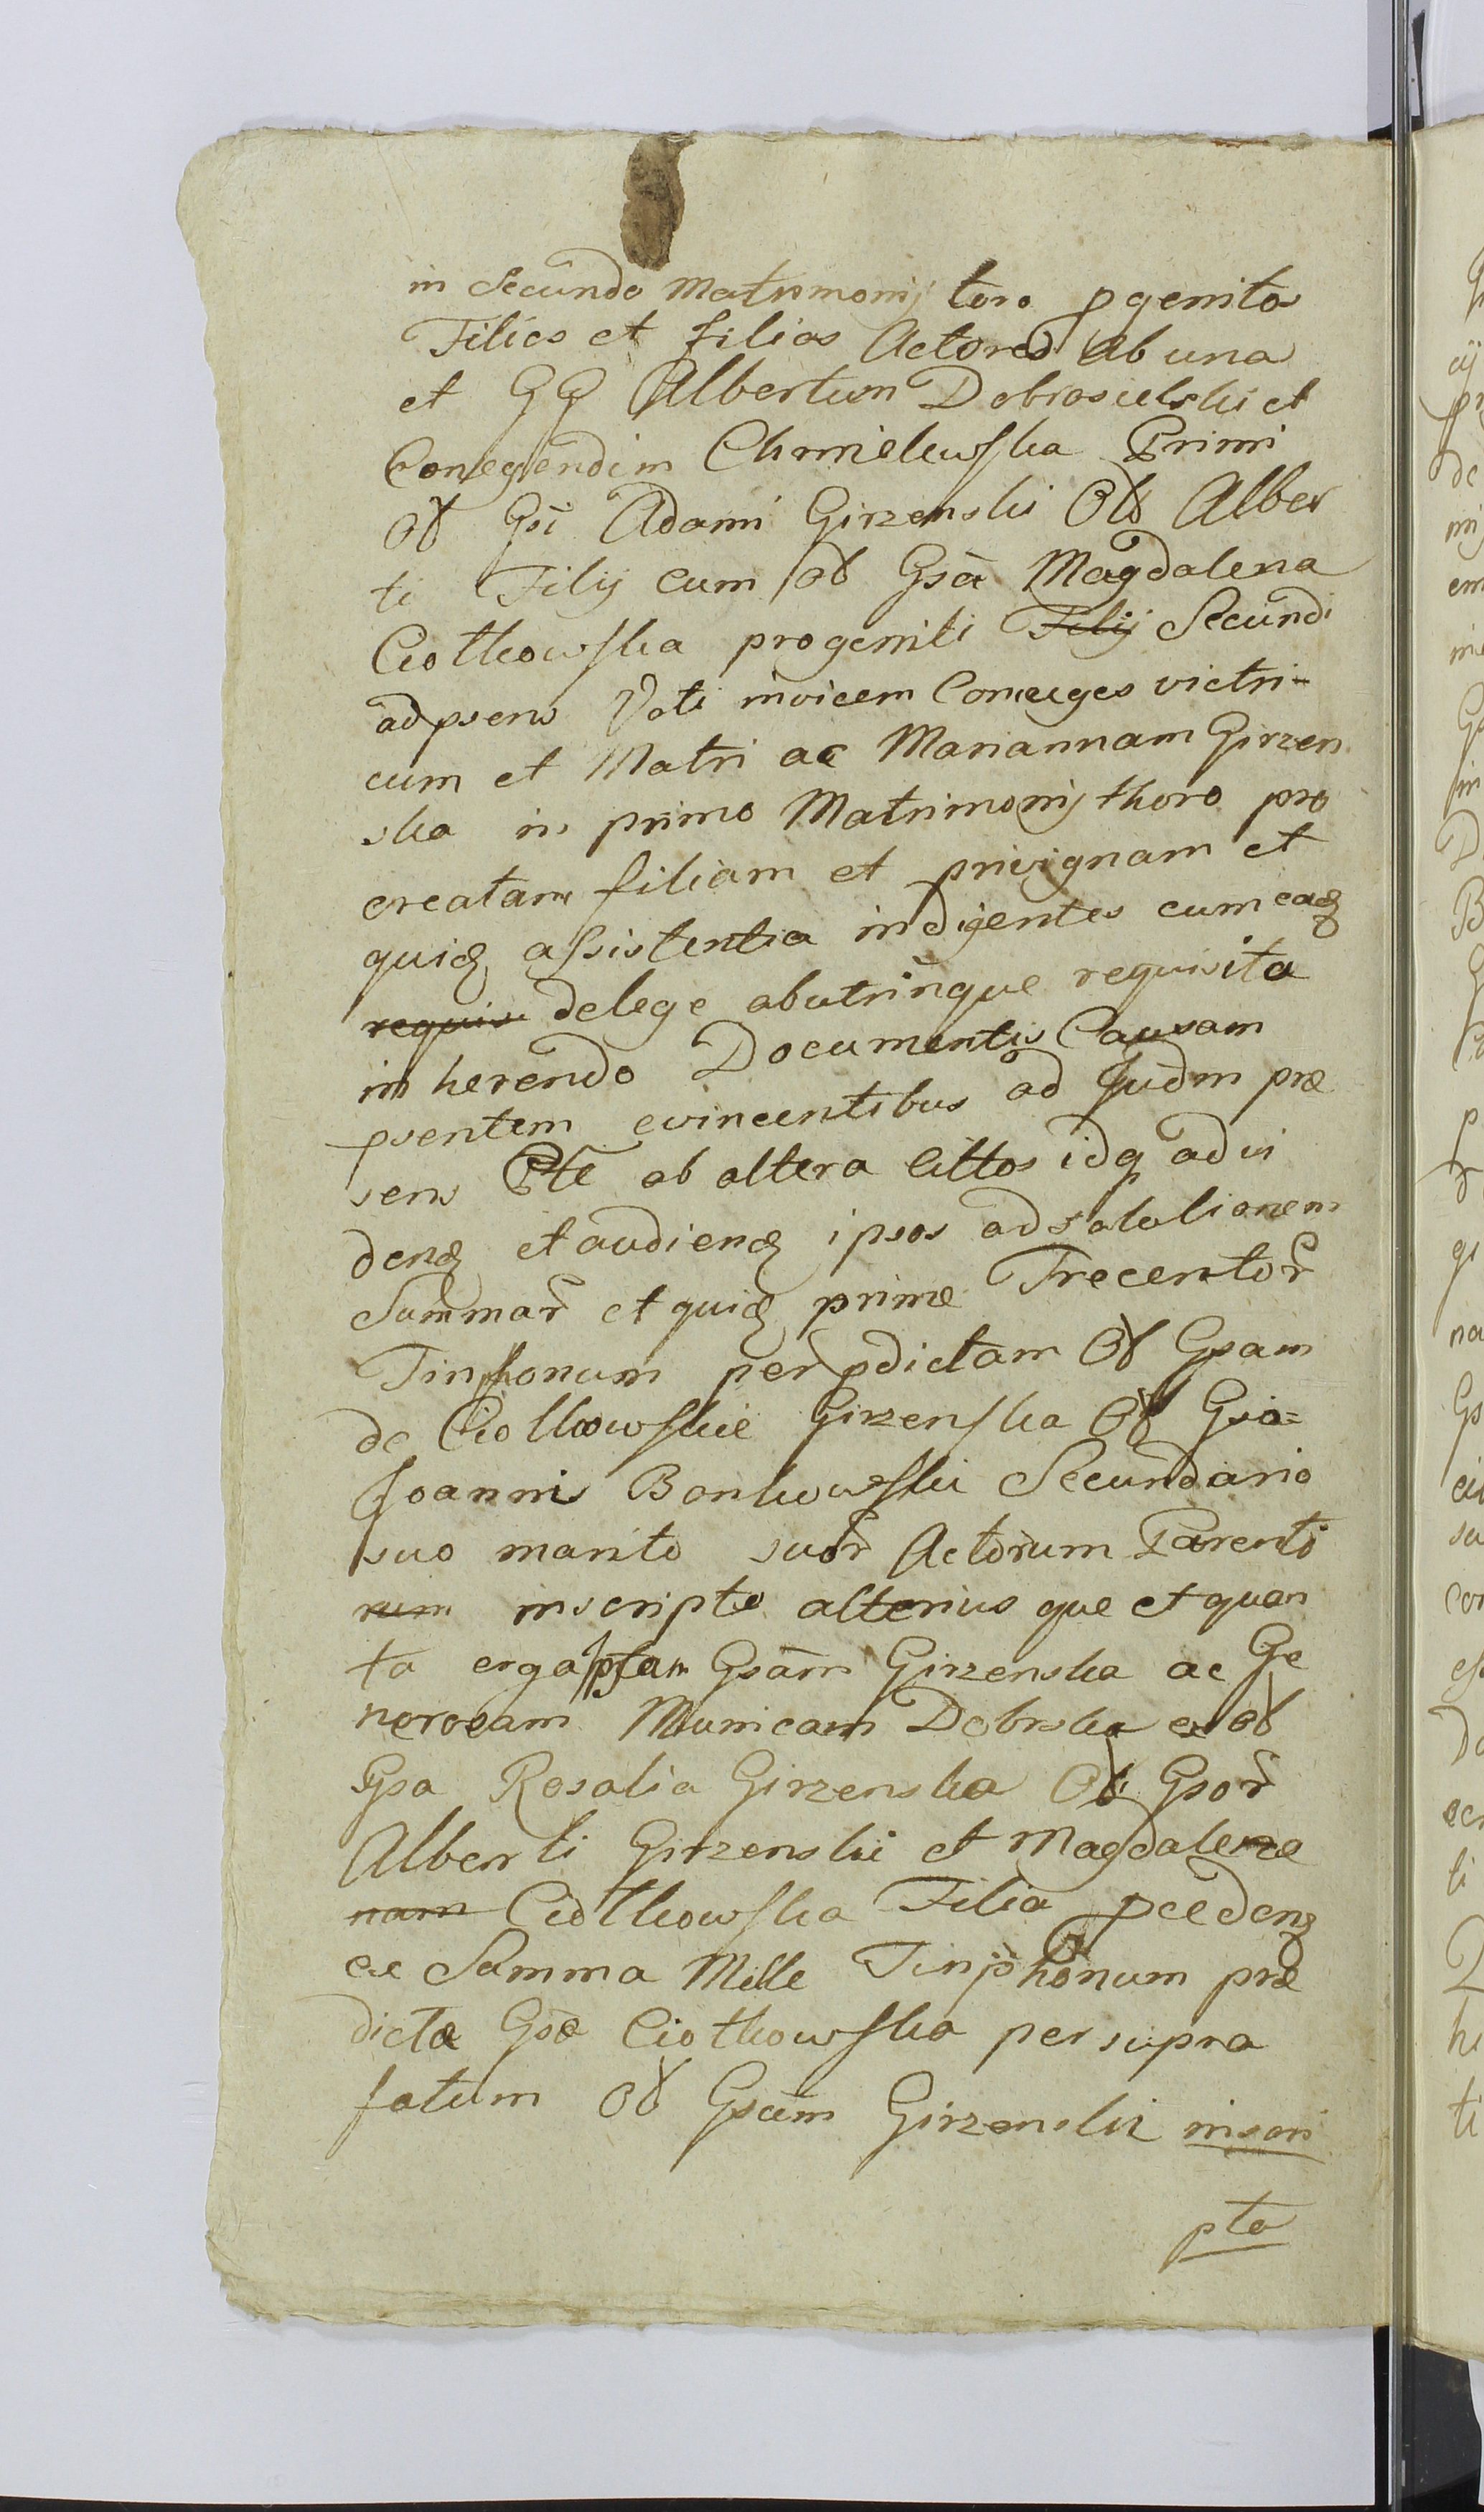 in Secundo Matrimonij toro pgenitos
Filios et filias Actores ab una
et GG Albertum Dobrosielski et
Conegundim Chmielewska Primi
Ol Gsi Adami Girzenski Ol Alber
ti Filij cum ol Gsā Magdalena
Ciotkowska progeniti Filij Secundi
ad psens Voti invicem Coniuges victri-
cum et Matri ac Mariannam Girzen
ska in primo Matrimonij thoro pro
creatam filiam et privignam et
quidē assistentia indigentes cum eadē
requisi de lege ab utrinque requisita
in herendo Documentis Causam
psentem evincentibus ad Judm præ
sens Pte ab altera Cittos idq ad vi
dend et audiend ipsos ad solutionem
Summar et quid primæ Trecentor
Tinphonum per pdictam Ol Gsam
de Ciotkowskie Girzenska Ol Gso=
Joannis Bonkowski Secundario
suo marito suor Actorum Parento
rum inscripto alterius que et quan
ta erga psam Gsām Girzenska ac Ge
nerosam Municam Dobrska ex ol
Gsa Rosalia Girzenska Ol Gsor
Alberti Girzenski et Magdalenæ
nam Ciotkowska Filia pcedend
ex Summa Mille Tinphonum præ
dicta Gsæ Ciotkowska per supra
fatum Ol Gsum Girzenski inscri
pta